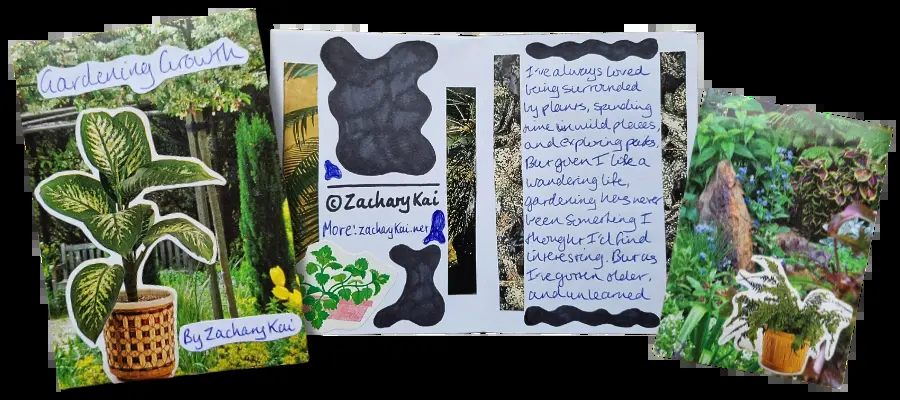 Gardening Growth
By Zachary Kai
© Zachary Kai
More: zacharykai.net
I've always loved
being surrounded
by plants, spending
time in wild places,
and exploring parks.
But given I like a
wandering life,
gardening has never
been something I
thought I'd find
interesting. But as
I've gotten older,
and unlearned